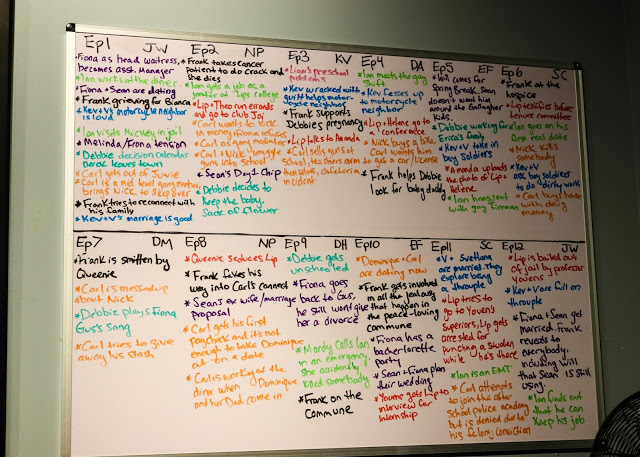 Ep1 JW
Fiona as head waitress,
becomes asst. Manager
*Ian works at the diner
*Fiona + Sean are dating
*Frank grieving for Bianca
*Kev+V's motorcycle neighbor
is loud
*Ian visits Mickey in jail
*Melinda/Fiona tension
*Debbie decision calendar
Derek leaves town
*Carl gets out of Juvie
*Carl is a mid level gang member
brings Nick to sleep over
*Frank tries to reconnect with
his family
*Kev+V's marriage is good
Ep2 NP
*Frank takes cancer
patient to do crack and
she dies
*Ian gets a job as a
janitor at Lip's college
*Lip+Theo run errands
and go to club Joi
*Carl wants to kick
in money, Fiona refuses
*Carl as gang mediator
*Carl + Nick smuggle
guns into School
*Sean's Day 1 Chip
*Debbie decides to
keep the baby.
Sack of flower
Ep3 KV
*Liam's preschool
problems
*Kev wracked with
guilt helps motor-
cycle neighbor
*Frank supports
Debbie's pregnancy
*Lip talks to Amanda
*Carl sells guns at
school, teachers arm
themselves, cafeteria
incident
Ep4 DA
*Ian meets the gay
*Kev fesses up
to motorcycle
neighbor
*Lip + Helene go to
a conference
*Nick buys a bike,
Carl wants him
to get a car/license
*Frank helps Debbie
look for baby daddy
Ep5 EF
*Will comes for
Spring Break, Sean
doesn't want him
around the Gallagher
Kids.
*Debbie working for
Erica's family
*Kev+V take in
boy Soldiers
*Amanda uploads
the photo of Lip+
Helene
*Ian hangs out
with gay fireman
Ep6 SC
*Frank at the
hospice
*Lip testifies before
tenure committee
*Ian goes on his
first real date
*Nick kills
somebody
*Kev+V
ask boy soldiers
to do "dirty work"
*Carl buys house
with drug
money
Ep7 DM
*Frank is smitten by
Queenie
*Carl is messed up
about Nick
*Debbie plays Fiona
Gus's song
*Carl tries to give
away his stash
Ep8 NP
*Queenie seduces Lip
*Frank fakes his
way into Carl's connect
*Sean's ex wife/marriage
proposal
*Carl gets his first
paycheck and it's not
enough to take Dominique
out for a date
*Carl is working at the
diner when Dominique
and her Dad come in
Ep9 DH
*Debbie gets
unschooled
*Fiona goes
back to Gus,
he still won't give
her a divorce
*Mandy calls Ian
in an emergency,
she accidentally
killed somebody
*Frank on the
Commune
Ep10 EF
*Dominique + Carl
are dating now
*Frank gets involved
in all the jealousy
that happen in
the peace-loving
commune
*Fiona has a
bachelorette
party
*Sean + Fiona plan
their wedding
*Youens gets Lip to
interview for
internship
Ep11 SC
*V + Svetlana
are married. They
explore being
a throuple
*Lip tries to
go to Youen's
Superiors, Lip gets
arrested for
punching a student
while he's there
*Ian is an EMT
*Carl attempts
to join the after
School police academy
but is denied due to
his felony conviction
Ep12 JW
*Lip is bailed out
of jail by professor
Youens
*Kev+V are full on
throuple
*Fiona + Sean get
married. Frank
reveals to
everybody,
including Will
that Sean is still
using.
*Ian finds out
that he can
Keep his job